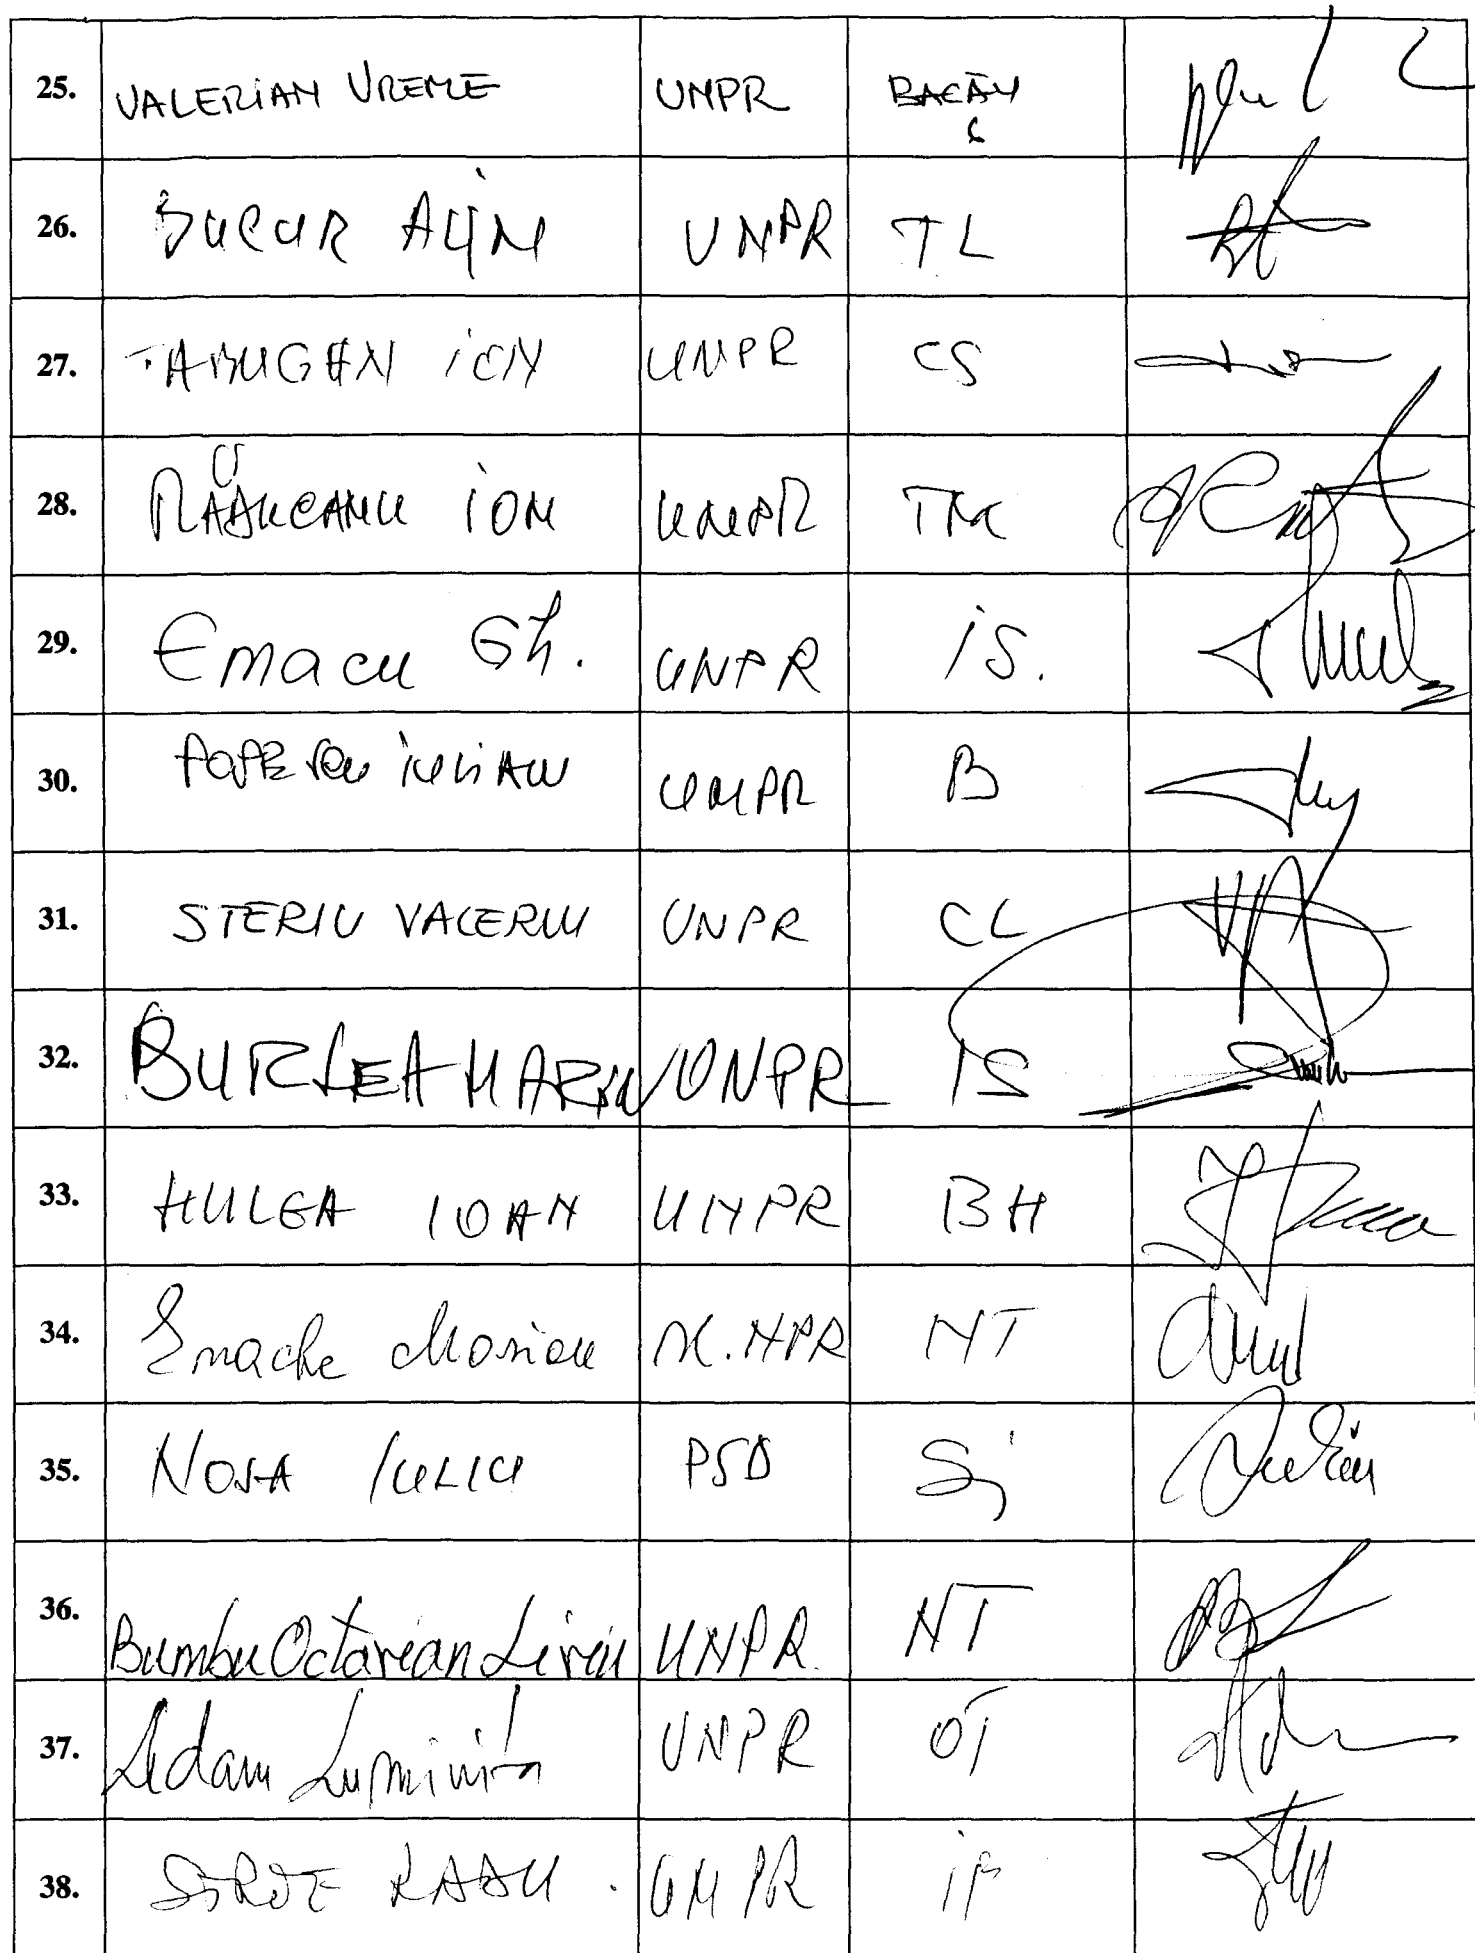 25. VALERIAN VREME UNPR BACĂU
26. BUCUR ALIN UNPR TL
27. TABUGAN ION UNPR CS
28. RĂDUCANU ION UNPR
29. Emacu Gh. UNPR IS.
30. POPESCU IULIAN UNPR B
31. STERIU VALERIU UNPR CL
32. BURLEA MARIN UNPR IS
33. HULEA IOAN UNPR BH
34. Enache Marian U.NPR NT
35. NOSA IULIU PSD SJ
36. Bumbu Octavian Liviu UNPR. NT
37. Adam Luminita UNPR OT
38. RADU UNPR